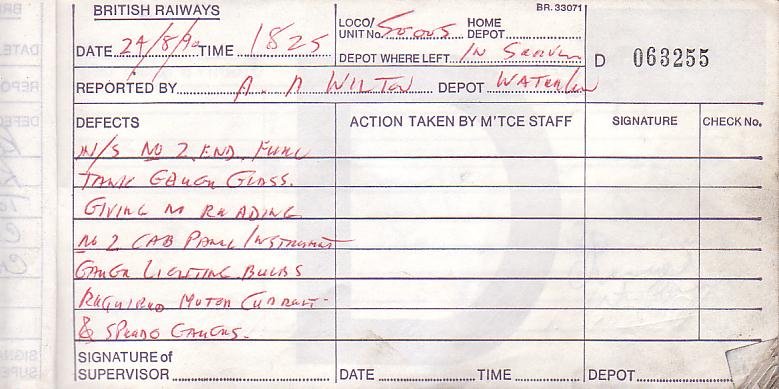 BRITISH RAIWAYS
BR. 33071
DATE 24/8/90 TIME 1825
LOCO/ UNIT No. 50005 HOME DEPOT
DEPOT WHERE LEFT IN SERVICE
D 063255
REPORTED BY A. N WILTON DEPOT WATERLOO
DEFECTS
ACTION TAKEN BY M'TCE STAFF
SIGNATURE
CHECK No.
N/S No 2 END. FUEL
TANK GAUGE GLASS.
GIVING NO READING
No 2 CAB PANEL INSTRUMENT
GAUGE LIGHTING BULBS
REQUIRED MOTOR CURRENT -
& SPEEDO GAUGES.
SIGNATURE of SUPERVISOR
DATE
TIME
DEPOT